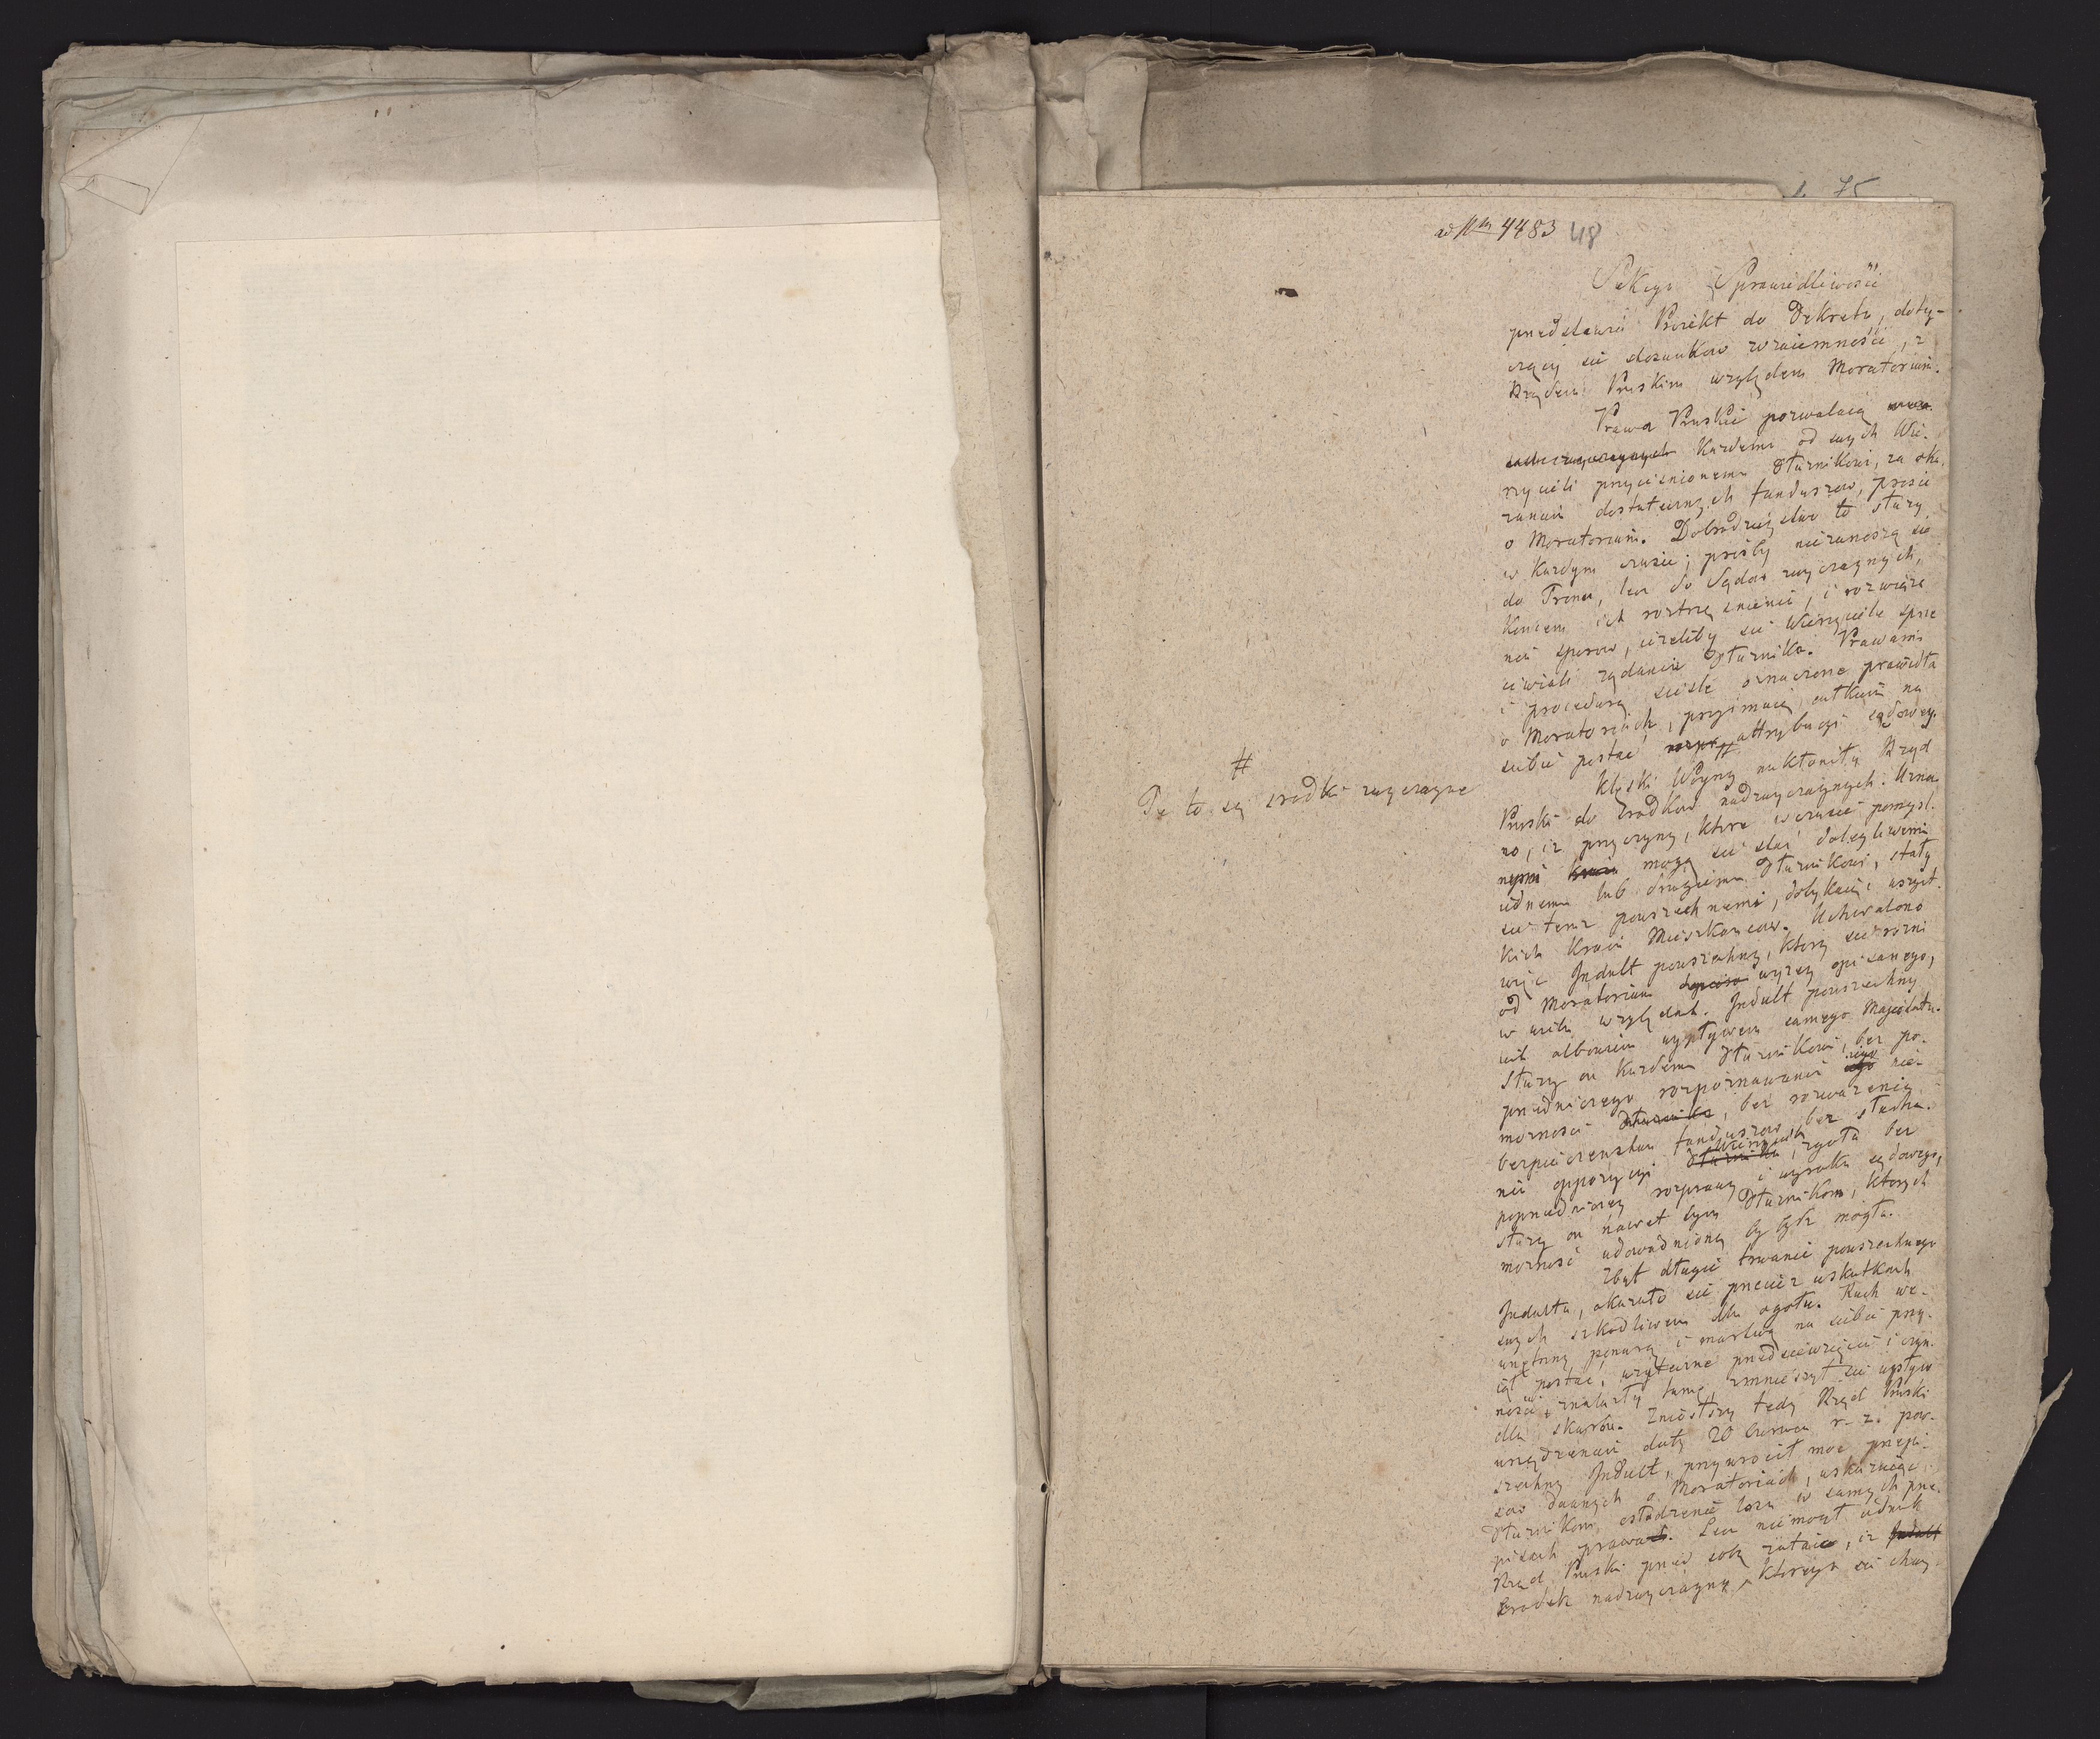 75
ad Nm 4483 48
Sekcya Sprawiedliwości
przedstawia Proiekt do Dekretu, doty-
czący się stosunkow wzaiemności, z
Rządem Pruskim względem Moratorium.
Prawa Pruskie pozwalaią
Każdemu od swych Wie-
rzycieli przyciśnionemu Dłużnikowi, za oka-
zaniem dostatecznych funduszow, prosić
o Moratorium. Dobrodzieystwo to służy
w Każdym czasie; prośby niezanoszą się
do Tronu, lecz do Sądow zwyczaynych,
Koncem ich roztrząśnienia, i rozwiąza
nia sporow, ieżeliby się Wierzyciele sprze
ciwiali żądaniu Dłużnika. Prawami
i procedurą ściśle oznaczone prawidła
o Moratoriach, przyimuią całkiem na
siebie postać attrybucyi sądowey.
#
Te to są srodki zwyczayne
Klęski Woyny nakłoniły Rząd
Pruski do srodkow nadzwyczaynych. Uzna-
no, iż przyczyny, ktore w czasie pomysl-
nym mogą się stać dolegliwemi
iednemu lub drugiemu Dłużnikowi, stały
się teraz powszechnemi, dotykaią wszyst-
kich Kraiu Mieszkancow. Uchwalono
więc Indult powszechny, ktory się rożni
od Moratorium wyżey opisanego,
w wielu względach. Indult powszechny
iest albowiem wypływem samego Majestatu.
Służy on Każdemu Dłużnikowi, bez po-
przedniczego rozpoznawania iego nie-
możności, bez rozważenia
bezpieczenstwa funduszow, bez słucha-
nia oppozycyi Wierzyciela, zgoła bez
poprzedniczey rozprawy i wyroku sądowego,
służy on nawet tym Dłużnikom, ktorych
możność udowodnioną by bydź mogła.
Zbyt długie trwanie powszechnego
Indultu, okazało się przecież w skutkach
swych szkodliwem dla ogołu. Ruch we-
wnętrzny ponurą i martwą na siebie przy-
iął postać, użyteczne przedsięwzięcia i czyn-
ności znalazły tamę, zmnieyszył się wpływ
dla skarbu. Zniosłszy tedy Rząd Pruski
urządzeniem daty 20 Czerwca r. z. pow-
szechny Indult, przywrocił moc przepi-
sow dawnych o Moratoriach, wskazuiąc
Dłużnikom osłodzenie losu w samych prze-
pisach prawa. Lecz nie mogł iednak
Rząd Pruski przed sobą zataić, iż
srodek nadzwyczayny, ktorego się chwy-